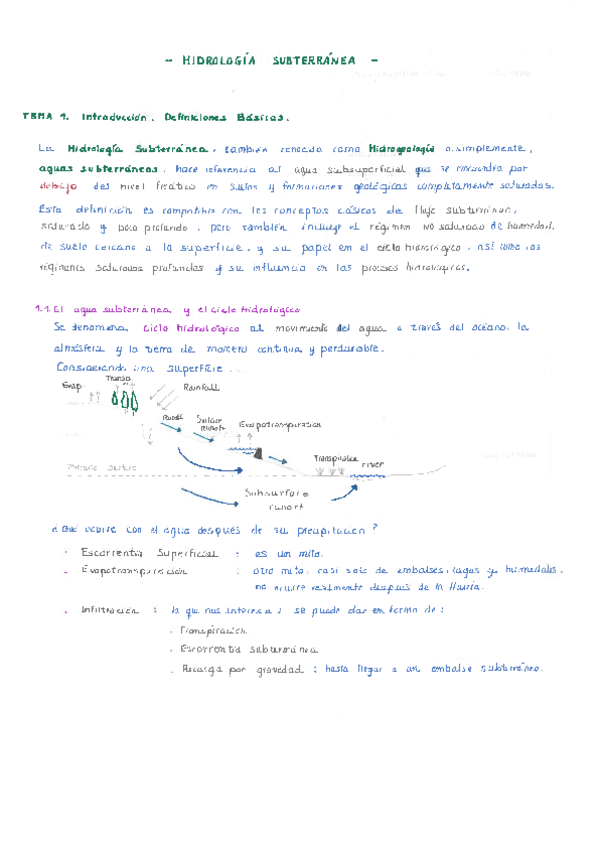 - HIDROLOGÍA SUBTERRÁNEA -
TEMA 1. Introducción. Definiciones Básicas.
La Hidrología Subterránea, también conocida como Hidrogeología o simplemente,
aguas subterráneas, hace referencia al agua subsuperficial que se encuentra por
debajo del nivel freático en suelos y formaciones geológicas completamente saturadas.
Esta definición es compatible con los conceptos clásicos de flujo subterráneo,
saturado y poco profundo, pero también incluye el régimen no saturado de humedad,
de suelo cercano a la superficie, y su papel en el ciclo hidrológico, así como los
regímenes saturados profundos y su influencia en los procesos hidrológicos.
1.1 El agua subterránea y el ciclo hidrológico
Se denomina ciclo hidrológico al movimiento del agua a través del océano, la
atmósfera y la tierra de manera continua y perdurable.
Considerando una superficie ...
Evap. Transp. Rainfall
Runoff Surface runoff Evapotranspiration
Transpiration river
Surface
Subsurface
runoff
¿Qué ocurre con el agua después de su precipitación?
· Escorrentía Superficial : es un mito.
· Evapotranspiración : otro mito, casi solo de embalses, lagos y humedales,
no ocurre realmente después de la lluvia.
· Infiltración : la que nos interesa ; se puede dar en forma de :
. Transpiración
. Escorrentía subterránea
. Recarga por gravedad : hasta llegar a un embalse subterráneo.